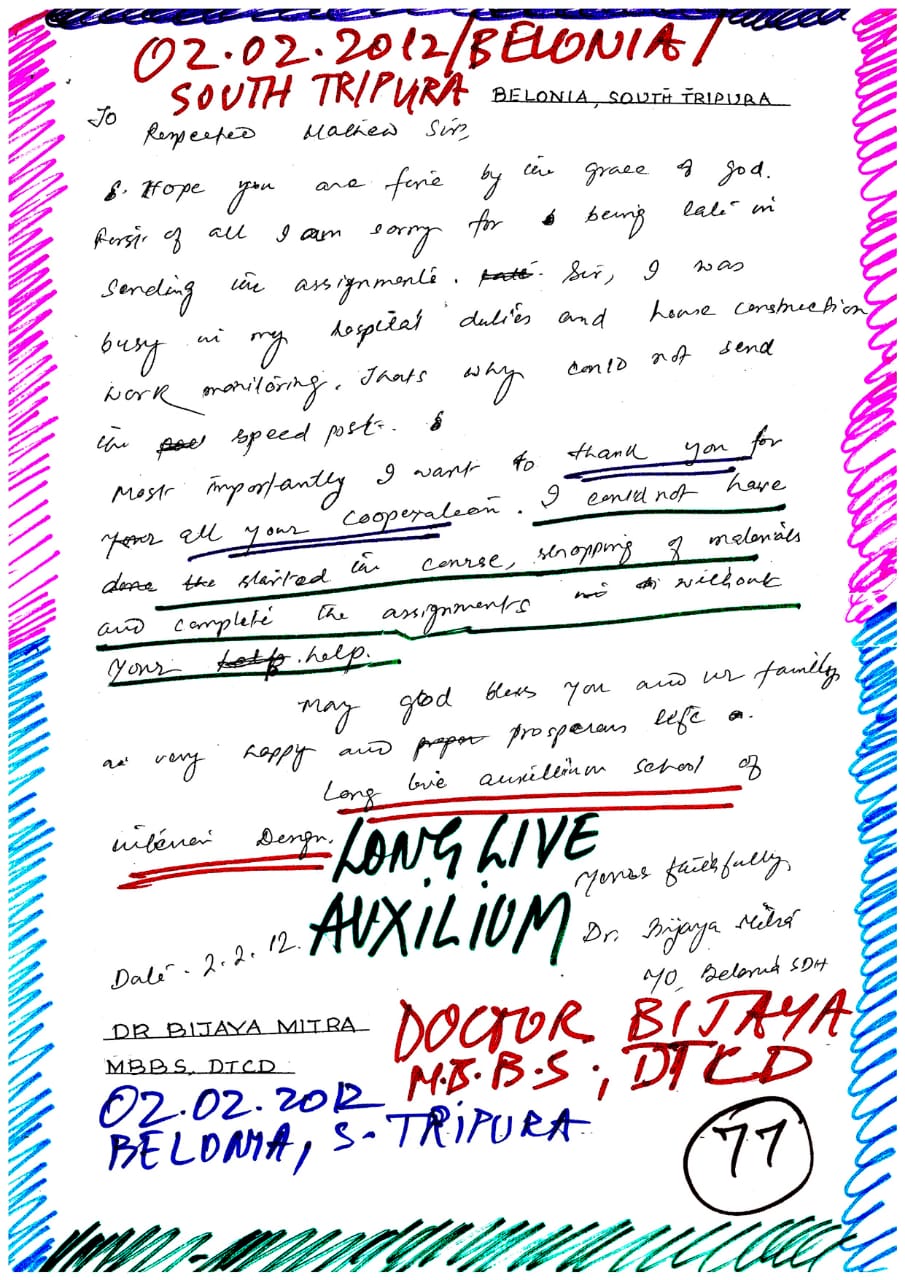 02.02.2012/BELONIA/
SOUTH TRIPURA BELONIA, SOUTH TRIPURA
To
Respected Mathew Sir,
Hope you are fine by the grace of god.
First of all I am sorry for being late in
sending the assignments. Sir, I was
busy in my hospital duties and house construction
work monitoring. Thats why could not send
the speed post.
Most importantly I want to thank you for
all your cooperation. I could not have
started the course, shopping of materials
and complete the assignments without
your help.
May god bless you and ur family
a very happy and prosperous life.
Long live auxillium school of
interior Design.
LONG LIVE
AUXILIUM
Yours faithfully,
Dr. Bijaya Mitra
Date - 2.2.12.
MO, Belonia SDH
DR BIJAYA MITRA
MBBS, DTCD
DOCTOR BIJAYA
M.B.B.S, DTCD
02.02.2012
BELONIA, S-TRIPURA
77